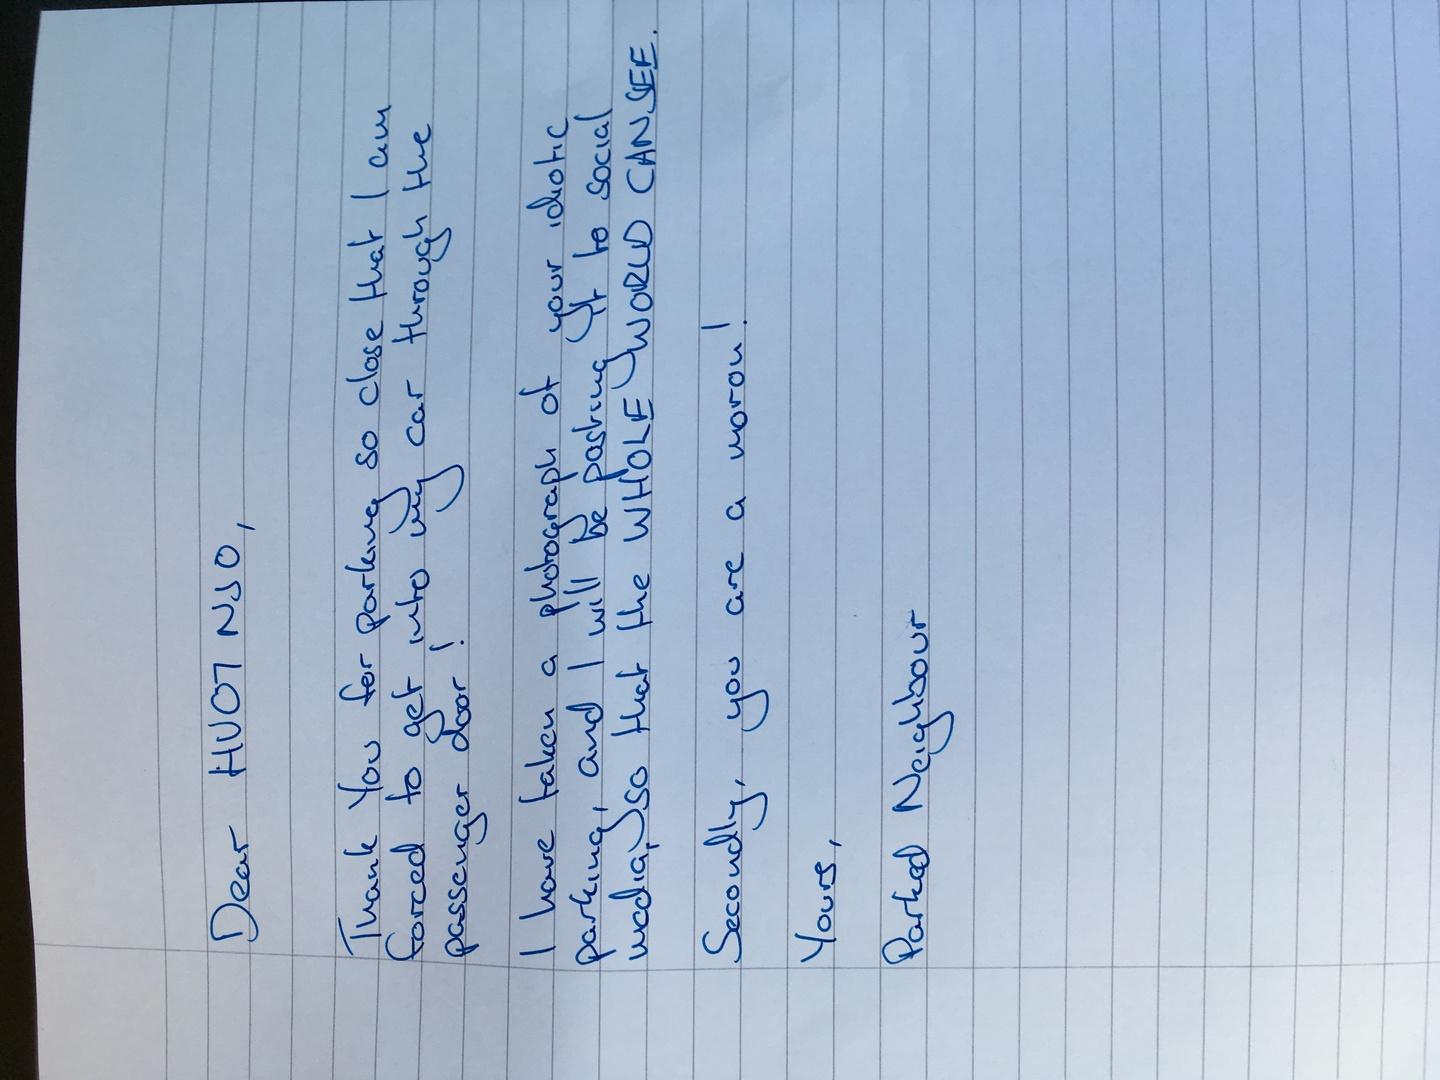 Dear HV07 NJO,
Thank You for parking so close that I am
forced to get into my car through the
passenger door!
I have taken a photograph of your idiotic
parking, and I will be posting it to social
media, so that the WHOLE WORLD CAN SEE.
Secondly, you are a moron!
Yours,
Parked Neighbour